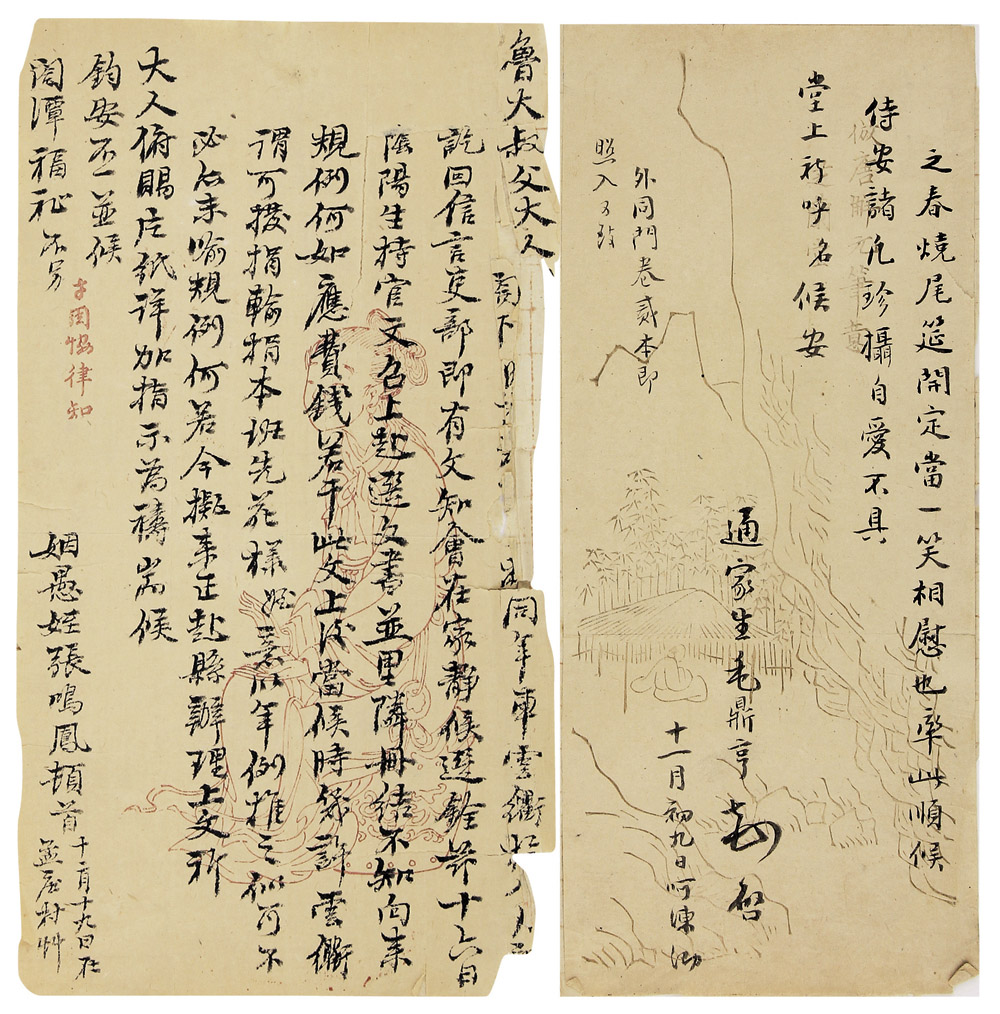 之春燒尾筵開定當一笑相慰也率此順候
侍安諸凡珍攝自愛不具
堂上祈呼名候安
通家生毛鼎亨 啓
十一月初九日呵凍泐
外同門卷貳本即
照入 致
魯大叔父大人
閣下 同年車雲衢
說回信言吏部即有文知會在家靜候選銓節十六日
陰陽生持官文名上赴選文書並里隣冊結不知向來
規例何如應費錢若干此文上後當候時幾許雲衢
謂可援捐輸捐本班先花樣姪意以年例推之似可不
必但未喻規例何若今擬來正赴縣辦理上文祈
大人俯賜片紙詳加指示為禱耑候
鈞安不並候
閤潭福祉不另
姻愚姪張鳴鳳頓首
十二月十九日在
孟 村艸